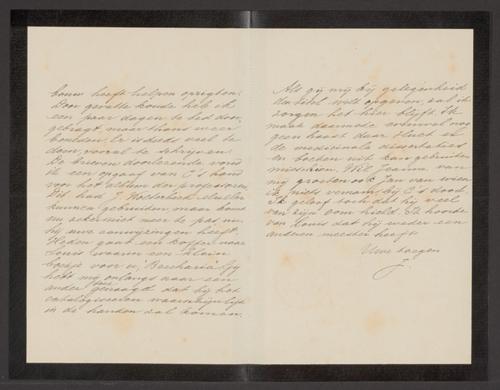 bouw heeft helpen oprigten.
Door gevatte koude heb ik
een paar dagen te bed door
gebragt, maar thans weer
beneden. Er is deed veel te
doen, vooral te schrijven
De brieven doorlezende vond
ik een opgaaf van C's hand
voor het album der professoren
Het had J.
kunnen gebruiken maar komt
nu zeker niet meer te pas nu
hij uwe aanwijzingen heeft.
Heden gaat een koffer naar
Louis waarin een klein
boekje voor u, Beccharia. Gij
hebt mij onlangs naar een
ander gevraagd dat bij het
catalogiseeren waarschijnlijk
in de handen zal komen.
Als gij mij bij gelegenheid
den titel wilt opgeven, zal ik
zorgen het hier blyft. Ik
maak daarmede evenwel nog
geen haast daar Hect en
de medicinale dissertaties
en boeken uit kan gebruiken
misschien. Wil Jeanne van
mij groeten ook Jan van wien
ik niets vernam bij C's dood.
Ik geloof toch dat hij veel
van zijn oom hield. Ik hoorde
van Louis dat hij weder een
anderen meester heeft
Uwe toegen
J.